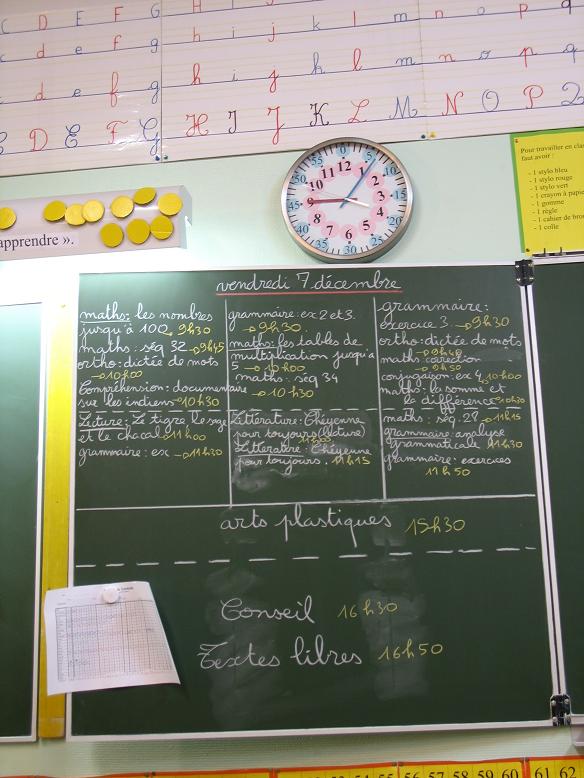 C D E F G H I J k l m n o p q
c d e f g h i j k l m n o p q
c d e f g h i j k h l m n o p q
C D E F G H I J K L M N O P Q
Pour travailler en cla
faut avoir :
- 1 stylo bleu
- 1 stylo rouge
- 1 stylo vert
- 1 crayon à papie
- 1 gomme
- 1 règle
- 1 cahier de brou
- 1 colle
apprendre ».
12 1 2 3 4 5 6 7 8 9 10 11
0 5 10 15 20 25 30 35 40 45 50 55
vendredi 7 décembre
maths: les nombres
jusqu'à 100 → 9h30
maths : séq 32 → 9h45
ortho: dictée de mots
→ 10h00
Compréhension: documentaire
sur les indiens → 10h30
Lecture: Le tigre le sage
et le chacal → 11h00
grammaire: ex → 11h30
grammaire: ex 2 et 3.
→ 9h30.
maths: les tables de
multiplication jusqu'à
5 → 10h00
maths: séq 34
→ 10h30
Littérature: Chéyenne
pour toujours (lecture)
11h00
Littérature: Chéyenne
pour toujours. 11h15
grammaire:
exercice 3. → 9h30
ortho: dictée de mots
→ 9h40
maths: correction
→ 9h50
conjugaison: ex 4 → 10h00
maths: la somme et
la différence 10h30
maths: séq. 29 → 11h15
grammaire: analyse
grammaticale 11h30
grammaire: exercices
11h50
arts plastiques 15h30
Conseil 16h30
Textes libres 16h50
53 54 55 56 57 58 59 60 61 62